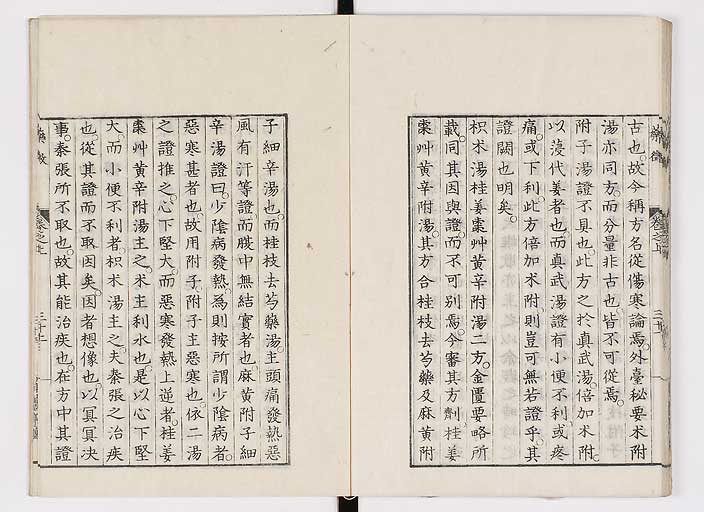 古也。故今稱方名從傷寒論焉。外臺秘要朮附
湯亦同方。而分量非古也。皆不可從焉。
附子湯證不具也。此方之於真武湯。倍加朮附
以蔆代姜者也。而真武湯證有小便不利。或疼
痛。或下利。此方倍加朮附。則豈可無若證乎。其
證闕也明矣。
枳朮湯桂姜棗艸黃辛附湯二方。金匱要略所
載。同其因與證。而不可別焉。今審其方劑。桂姜
棗艸黃辛附湯。其方合桂枝去芍藥及麻黃附
子細辛湯也。而桂枝去芍藥湯。主頭痛發熱惡
風有汗等證。而腹中無結實者也。麻黃附子細
辛湯證曰。少陰病發熱。為則按。所謂少陰病者。
惡寒甚者也。故用附子。附子主惡寒也。依二湯
之證推之。心下堅大。而惡寒發熱上逆者。桂姜
棗艸黃辛附湯主之。朮主利水也。是以心下堅
大。而小便不利者。枳朮湯主之。夫秦張之治疾
也。從其證而不取因矣。因者想像也。以冥冥決
事。秦張所不取也。故其能治疾也。在方中其證